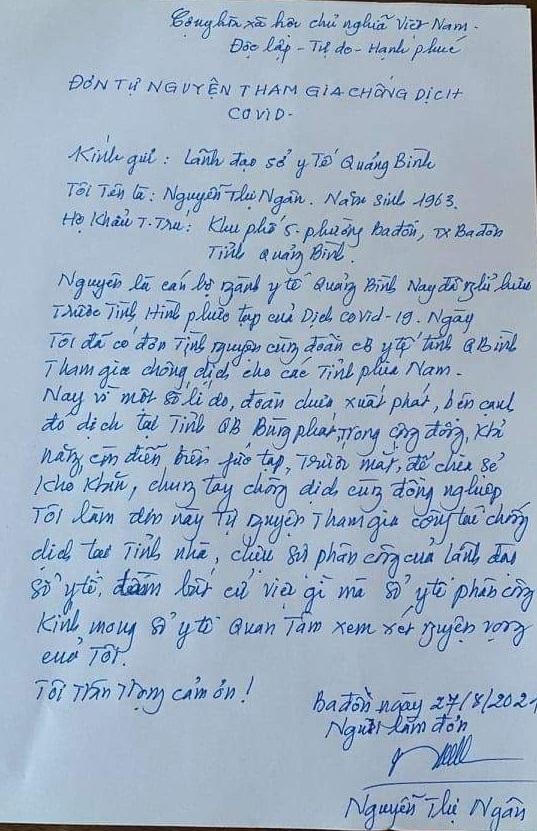 Cộng hòa xã hội chủ nghĩa Việt Nam.
Độc lập - Tự do - Hạnh phúc
ĐƠN TỰ NGUYỆN THAM GIA CHỐNG DỊCH
COVID-
Kính gửi: Lãnh đạo sở y Tế Quảng Bình
Tôi Tên là: Nguyễn Thị Ngân. Năm sinh 1963.
Hộ Khẩu T. Trú: Khu phố 5. phường Ba đồn, TX Ba đồn
Tỉnh Quảng Bình.
Nguyên là cán bộ ngành y tế Quảng Bình Nay đã nghỉ hưu
Trước Tình Hình phức tạp của Dịch covid-19. Ngày
Tôi đã có đơn Tình nguyện cùng đoàn CB y tế tỉnh QBình
Tham gia chống dịch cho các Tỉnh phía Nam.
Nay vì một số lí do, đoàn chưa xuất phát, bên cạnh
đó dịch tại Tỉnh QB Bùng phát, Trong cộng đồng, Khả
năng, còn diễn biến fức tạp, Trước mắt, để chia sẻ
Khó Khăn, chung tay chống dịch cùng đồng nghiệp
Tôi làm đơn này Tự nguyện Tham gia công tác chống
dịch tại Tỉnh nhà, chịu sự phân công của lãnh đạo
Sở y tế, bất cứ việc gì mà Sở y tế phân công
Kính mong Sở y tế Quan Tâm xem xét nguyện vọng
của Tôi.
Tôi Trân Trọng cảm ơn!
Ba đồn ngày 27/8/2021
Người làm đơn
Nguyễn Thị Ngân